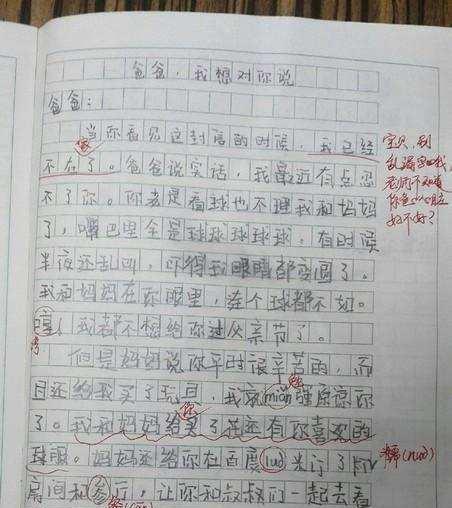 爸爸，我想对你说
爸爸：
当你看见这封信的时候，我已经
不在了。爸爸说实话，我最近有点忍
不了你。你老是看球也不理我和妈妈
了，嘴巴里全是球球球球球。有时候
半夜还乱叫，吓得我眼睛都变圆了。
我和妈妈在你眼里，连个球都不如。
我都不想给你过父亲节了。
但是妈妈说你平时很辛苦的，而
且还给我买了玩具，我就miǎn强原谅你
了。我和妈妈给买了花还有你喜欢的
球服。妈妈还给你在百度nuò米订了
房间和餐厅，让你和叔叔们一起去看
宝贝，别
你
勉
你
糯(nuò)